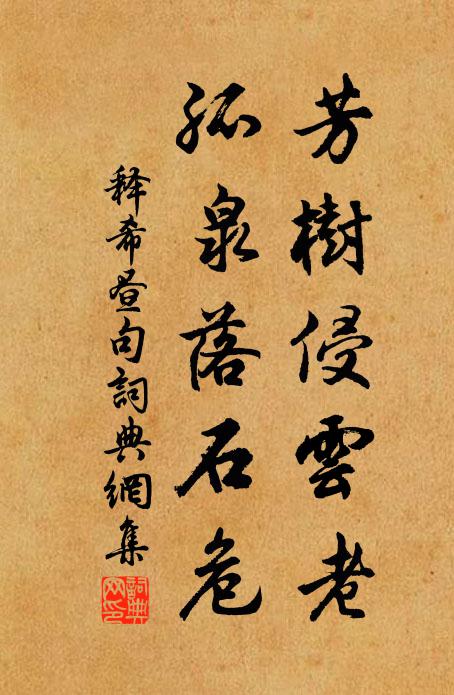 芳樹侵雲老
孤泉落石危
釋希晝句詞典網集
詞典網印